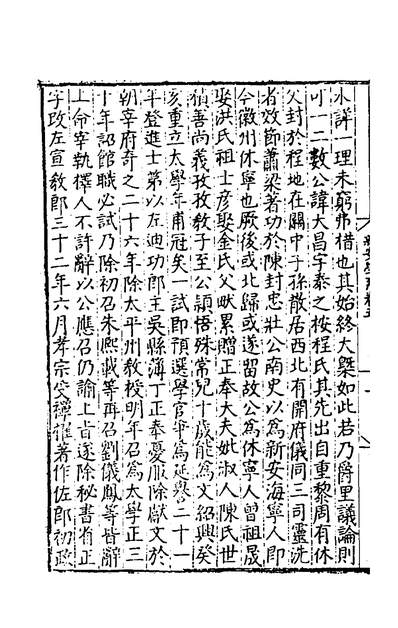 水詳一理未窮弗措也其始終大槩如此若乃爵里議論則
可一二數公諱大昌字泰之按程氏其先出自重黎周有休
父封於程地在關中子孫散居西北有開府儀同三司靈洗
者效節蕭梁著功於陳封忠壯公南史以為新安海寧人即
今徽州休寧也厥後或北歸或遂留故公為休寧人曾祖晟
娶洪氏祖士彥娶金氏父畎累贈正奉大夫妣淑人陳氏世
積善尚義孜孜教子至公穎悟殊常兒十歲能為文紹興癸
亥重立太學年甫冠矣一試即預選學官爭為延譽二十一
年登進士第以左迪功郎主吳縣簿丁正奉憂服除獻文於
朝宰府奇之二十六年除太平州教授明年召為太學正三
十年詔館職必試乃除初召朱熙載等再召劉儀鳳等皆辭
上命宰執擇人不許辭以公應召仍諭上旨遂除秘書省正
字改左宣教郎三十二年六月孝宗受禪擢著作佐郎初政